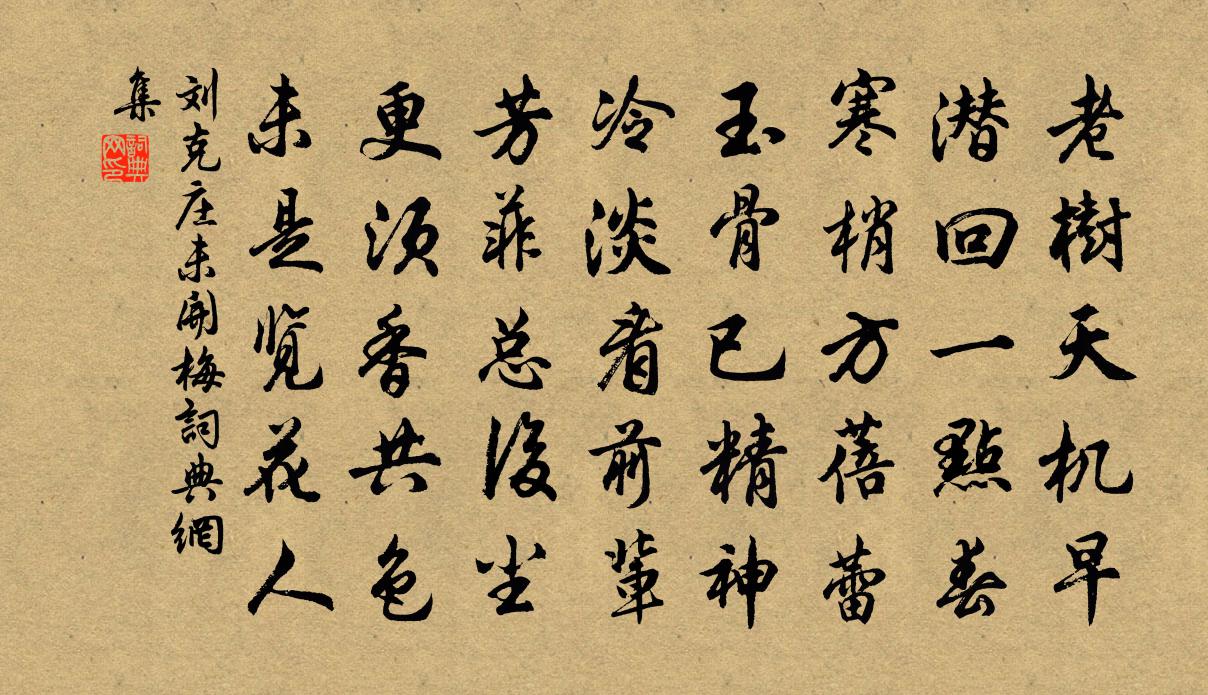 老樹天机早
潜回一點春
寒梢方蓓蕾
玉骨已精神
冷淡看前輩
芳菲总後尘
更须香共色
未是览花人
刘克庄未開梅詞典網
集
詞典网印